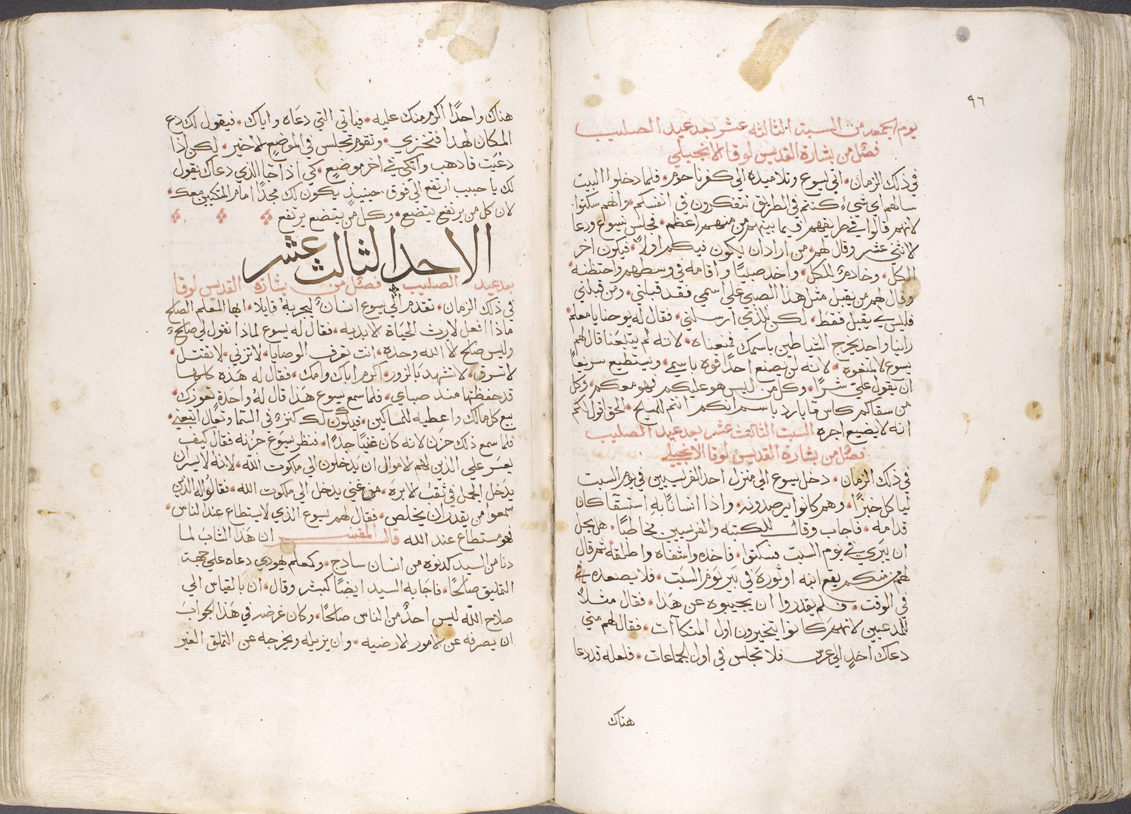 ٩٦
يوم الجمعه من السبت الثالثه عشر بعد عيد الصليب
فصل من بشارة القديس لوقا الانجيلي
في ذلك الزمان • اتى يسوع وتلاميذه الى كفرناحوم • فلما دخلوا البيت
سالهم اي شيء كنتم في الطريق تتفكرون في انفسكم • وانهم سكتوا
لانهم قالوا في طريقهم فيما بينهم من منهم اعظم • فجلس يسوع ودعا
لاثني عشر وقال لهم • من اراد ان يكون فيكم اولا • فيكون اخر
الكل • وخادم للكل • واخذ صبيا واقامه في وسطهم واحتضنه •
وقال لهم من يقبل مثل هذا الصبي على اسمي فقد قبلني • ومن قبلني
فليس يقبل فقط • لكن للذي ارسلني • فقال له يوحنا يا معلم
راينا واحد يخرج الشياطين باسمك فمنعناه • لانه لم يتبعنا قال لهم
يسوع لا تمنعوه • لانه لن يصنع احدا قوه باسمي • ويستطيع سريعا
ان يقول علي شرا • وكل من ليس هو عليكم فهو معكم • وكل
من سقاكم كاس ما بارد باسم انكم انتم للمسيح • الحق اقول لكم
انه لا يضيع اجره السبت الثالث عشر بعد عيد الصليب
فصل من بشارة القديس لوقا الانجيلي
في ذلك الزمان • دخل يسوع الى منزل احد الفريسيين في يوم السبت
لياكل خبزا • وهم كانوا يرصدونه • واذا انسانا به استسقا كان
قدامه • فاجاب وقال للكتبه والفريسيين مخاطبا • هل يحل
ان يبري في يوم السبت فسكتوا • فاخذه واشفاه واطلقه ثم قال
لهم من منكم يقع ابنه او ثوره في بير يوم السبت • فلا يصعده
في الوقت • فلم يقدروا ان يجيبوه عن هذا • فقال مثلا
للمدعيين لانهم كانوا يتخيرون اول المتكات • فقال لهم متى
دعاك احد الى عرس فلا تجلس في اول الجماعات • فلعله قد دعا
هناك
هناك واحدا اكرم منك عليه • فياتي الذي دعاه واياك • فيقول لك دع
المكان لهذا فتخزي • وتقوم تجلس في الموضع لاخير • لكن اذا
دعيت فاذهب واتكي في اخر موضع • كي اذا جا الذي دعاك يقول
لك يا حبيب ارتفع الى فوق حينيذ يكون لك مجدا امام المتكيين معك •
لان كل من يرتفع يتضع • وكل من يتضع يرتفع
الاحد الثالث عشر
بعد عيد الصليب فصل من بشارة القديس لوقا
في ذلك الزمان • تقدم الى يسوع انسان ليجربه قايلا • ايها المعلم الصالح
ماذا افعل لارث الحياة لابديه • فقال له يسوع لماذا تقول لي صالح •
وليس صالح لا الله وحده • انت تعرف الوصايا • لا تزني • لا تقتل •
لا تسرق • لا تشهد بالزور • اكرم اباك وامك • فقال له هذه كلها
قد حفظتها منذ صباي • فلما سمع يسوع هذا قال له واحدة تعوزك •
بيع كل مالك واعطيه للمساكين • فيكون لك كنز في السما وتعال اتبعني •
فلما سمع ذلك حزن لانه كان غنيا جدا • فنظر يسوع حزنه فقال كيف
يعسر على الذين لهم لاموال ان يدخلون الى ملكوت الله • لانه لايسر ان
يدخل الجمل في ثقب لابره • من غني يدخل الى ملكوت الله • فقالوا الذين
سمعوا من يقدر ان يخلص • فقال لهم يسوع الذي لا يستطاع عند الناس •
فهو مستطاع عند الله قال المفسر ان هذا الشاب لما
دنا من السيد كدنوه من انسان ساذج • وكمعلم يهودي دعاه على جهة
التمليق صالحا • فاجابه السيد ايضا كبشر وقال • ان بالقياس الى
صلاح الله ليس احد من الناس صالحا • وكان غرضه في هذا الجواب
ان يصرفه عن لامور لارضيه • وان يزيله ويخرجه عن التملق الغير